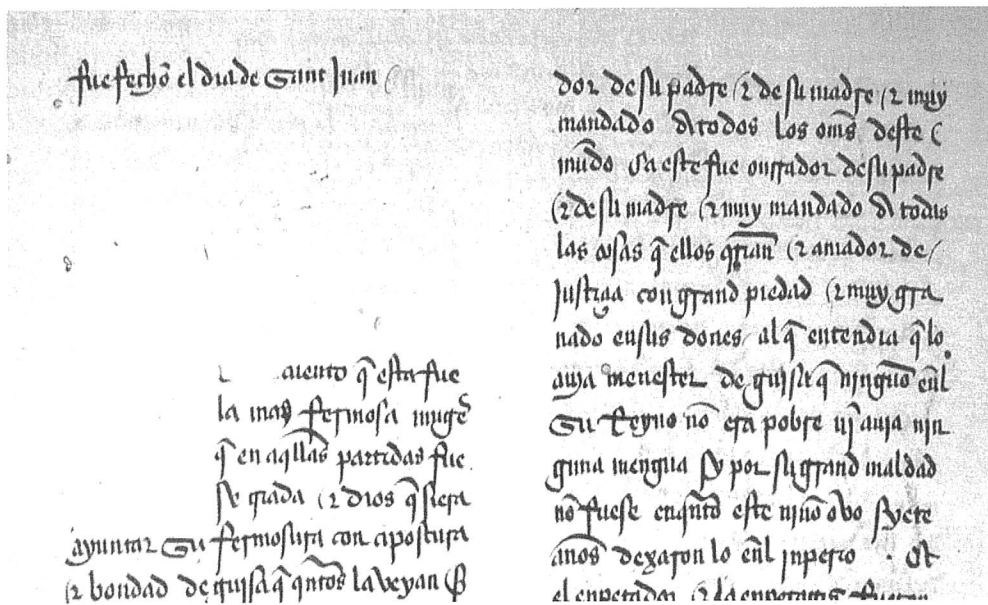 fue fecho el dia de Sant Juan
cuento q̃ esta fue
la mas fermosa muger
q̃ en aq̃llas partidas fue
se criada ⁊ dios q̃ siera
ayuntar su fermosura con apostura
⁊ bondad de guisa q̃ q̃ntos la veyan
dor de su padre ⁊ de su madre ⁊ muy
mandado de todos los om̃s deste
mũdo Ca este fue onrrador de su padre
⁊ de su madre ⁊ muy mandado de todas
las cosas q̃ ellos q̃rian ⁊ amador de
Justiçia con grand piedad ⁊ muy gra
nado en sus dones al q̃ entendia q̃ lo
auja menester de guisa q̃ njnguno eñl
su Reyno nõ era pobre nj̃ auja njn
guna mengua Sy por su grand maldad
nõ fuese enq̃nto este njño obo syete
años dexaron lo eñl jnperio Et
el enperador ⁊ la enperatris fueron